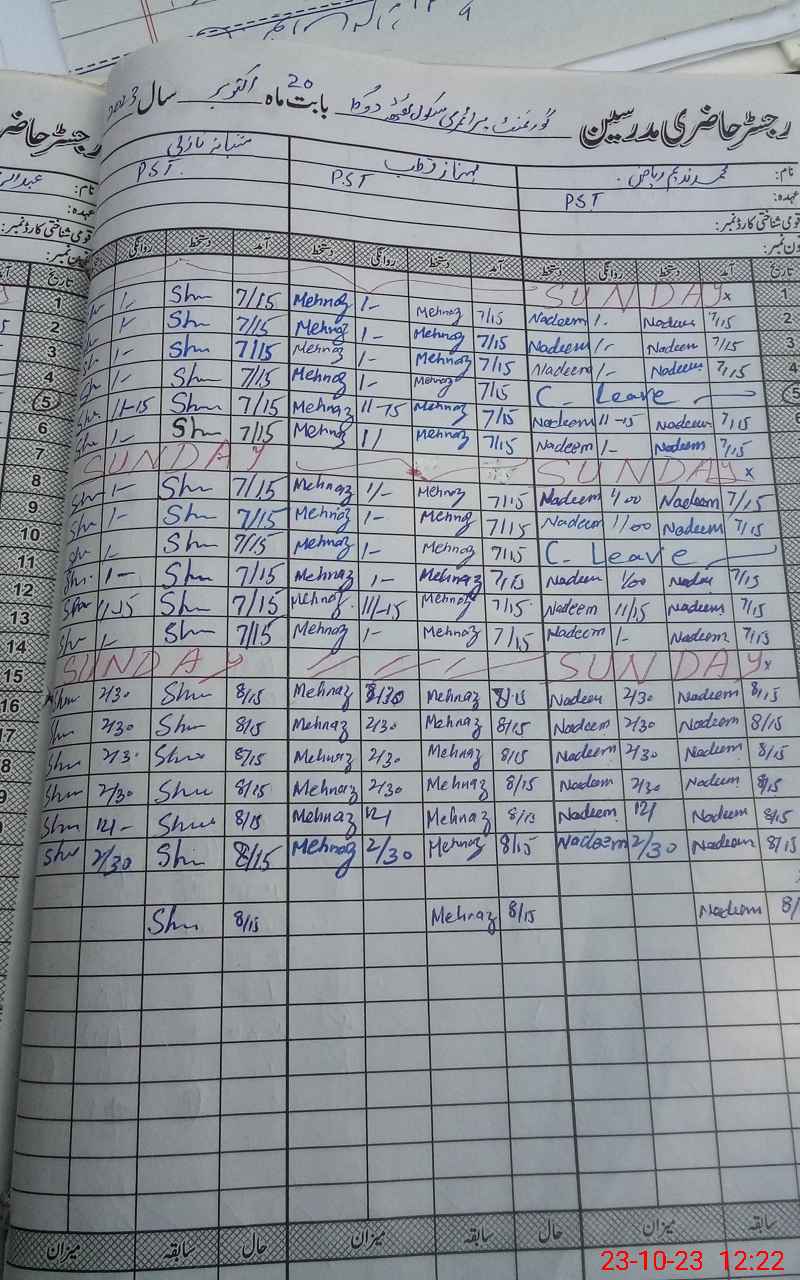 رجسٹر حاضری مدرسین گورنمنٹ پرائمری سکول بابت ماہ اکتوبر 20 سال 2023
نام: محمد ندیم ریاض مہناز
عہدہ: PST P.ST P.S.T.
قومی شناختی کارڈ نمبر:
فون نمبر:
تاریخ آمد دستخط روانگی دستخط آمد دستخط روانگی دستخط آمد دستخط روانگی
1 SUNDAY x
2 7/15 Nadeem 1/- Nadeem 7/15 Mehnaz 1/- Mehnaz 7/15 Shu 1/-
3 7/15 Nadeem 1/- Nadeem 7/15 Mehnaz 1/- Mehnaz 7/15 Shu 1-
4 7/15 Nadeem 1/- Nadeem 7/15 Mehnaz 1- Mehnaz 7/15 Shu 1-
5 C. Leave 7/15 Mehnaz 1- Mehnaz 7/15 Shu 1/-
6 7/15 Nadeem 11-15 Nadeem 7/15 Mehnaz 11-15 Mehnaz 7/15 Shu 11-15
7 7/15 Nadeem 1- Nadeem 7/15 Mehnaz 1/ Mehnaz 7/15 Shu 1-
8 SUNDAY x SUNDAY
9 7/15 Nadeem 1/00 Nadeem 7/15 Mehnaz 1/- Mehnaz 7/15 Shu 1-
10 7/15 Nadeem 1/00 Nadeem 7/15 Mehnaz 1- Mehnaz 7/15 Shu 1-
11 C. Leave 7/15 Mehnaz 1- Mehnaz 7/15 Shu
12 7/15 Nadeem 1/00 Nadeem 7/15 Mehnaz 1- Mehnaz 7/15 Shu 1-
13 7/15 Nadeem 11/15 Nadeem 7/15 Mehnaz 11/-15 Mehnaz 7/15 Shu
14 7/15 Nadeem 1- Nadeem 7/15 Mehnaz 1- Mehnaz 7/15 Shu 1-
15 SUNDAY x SUNDAY
16 8/15 Nadeem 2/30 Nadeem 8/15 Mehnaz 2/30 Mehnaz 8/15 Shu 2/30 Shu
17 8/15 Nadeem 2/30 Nadeem 8/15 Mehnaz 2/30 Mehnaz 8/15 Shu 2/30 Shu
8/15 Nadeem 2/30 Nadeem 8/15 Mehnaz 2/30 Mehnaz 8/15 Shu 2/30 Shu
8/15 Nadeem 2/30 Nadeem 8/15 Mehnaz 2/30 Mehnaz 8/15 Shu 2/30 Shu
8/15 Nadeem 12/ Nadeem 8/15 Mehnaz 12/ Mehnaz 8/15 Shu 12/- Shu
8/15 Nadeem 2/30 Nadeem 8/15 Mehnaz 2/30 Mehnaz 8/15 Shu 2/30 Shu
8/ Nadeem 8/15 Mehnaz 8/15 Shu
سابقہ میزان حال سابقہ میزان حال سابقہ میزان
23-10-23 12:22